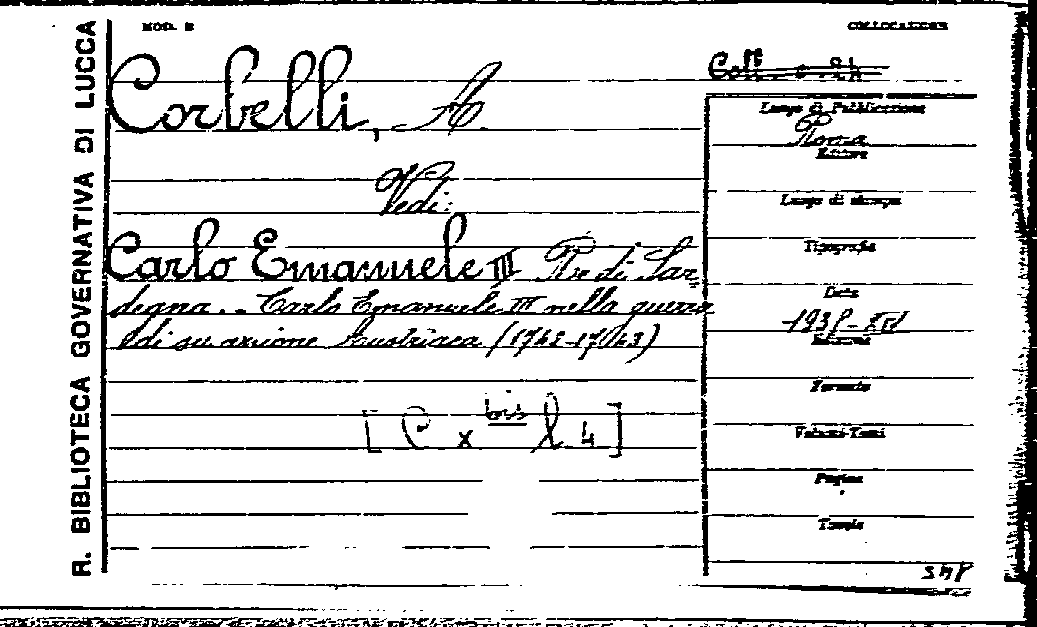 R. BIBLIOTECA GOVERNATIVA DI LUCCA
MOD. E
COLLOCAZIONE
Corbelli, A.
Vedi:
Carlo Emanuele III Re di Sar
degna.. Carlo Emanuele III nella guerra
di successione Austriaca
[ C x bis l 4 ]
Luogo di Pubblicazione
Roma
Editore
Luogo di stampa
Tipografia
Data
Edizione
Formato
Volumi-Tomi
Pagine
Tavole